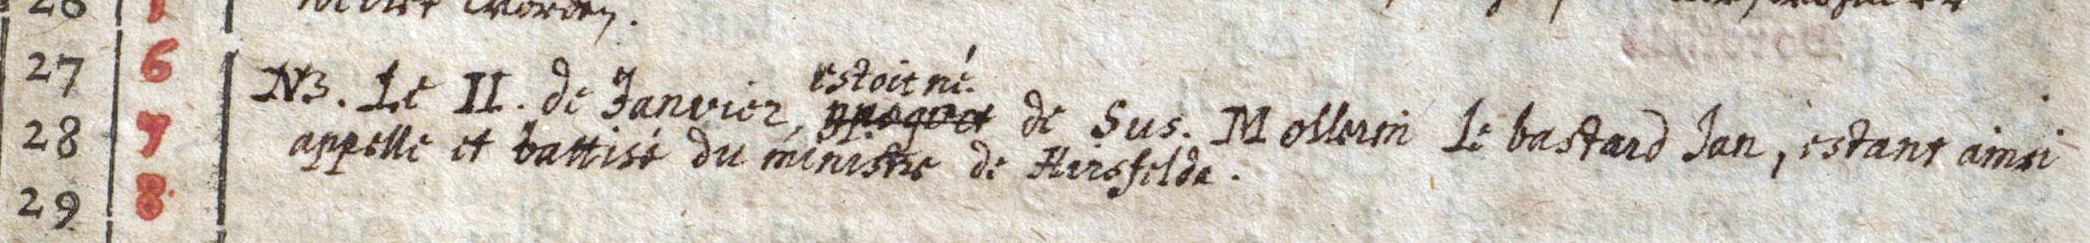 26
27 6 NB. Le II. de Janvier, estoit né de Sus. Mollerin le bastard Jan, estant ainsi
28 7 appelle et battisé du ministre de Hirsfelda.
29 8